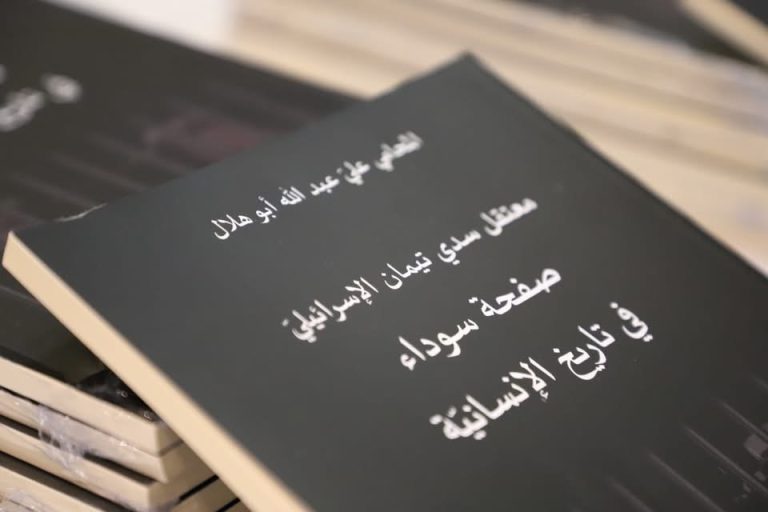 المحامي علي عبد الله أبو هلال
معتقل سدي تيمان الإسرائيليّ
صفحة سوداء
في تاريخ الإنسانيّة
في تاريخ